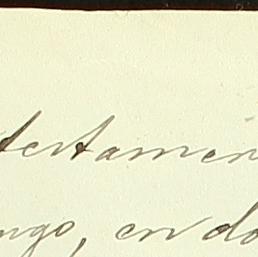 testamen
ngo, en do